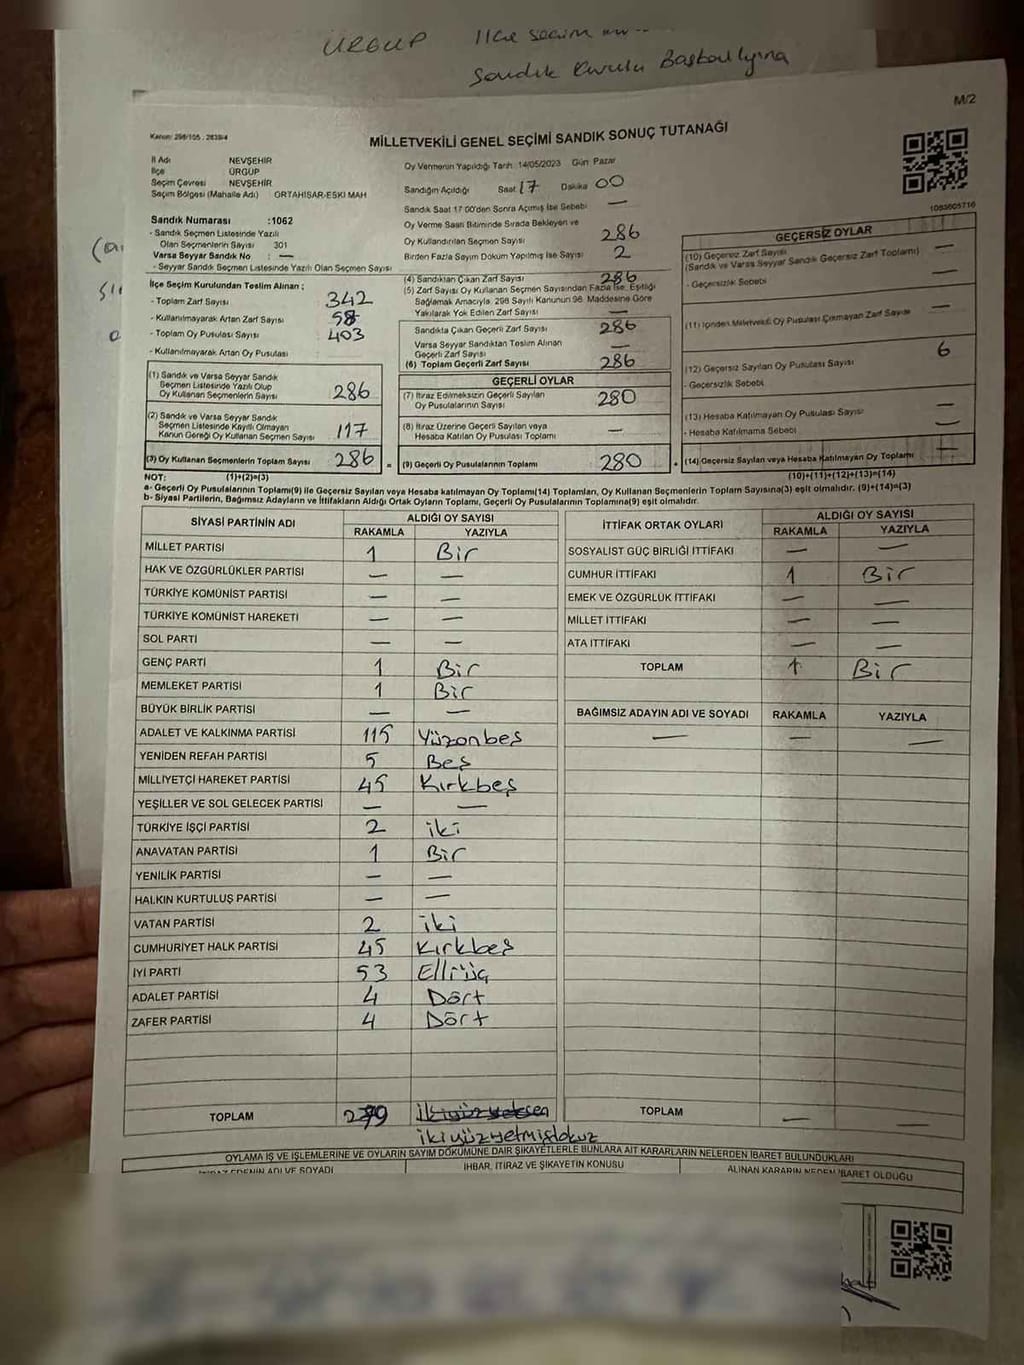 ÜRGÜP İlçe seçim
Sandık Kurulu Başkanlığına
M/2
Kanun: 298/105 , 2839/4
MİLLETVEKİLİ GENEL SEÇİMİ SANDIK SONUÇ TUTANAĞI
İl Adı NEVŞEHİR
İlçe ÜRGÜP
Seçim Çevresi NEVŞEHİR
Seçim Bölgesi (Mahalle Adı) ORTAHİSAR-ESKİ MAH
Sandık Numarası :1062
- Sandık Seçmen Listesinde Yazılı
Olan Seçmenlerin Sayısı 301
Varsa Seyyar Sandık No : —
- Seyyar Sandık Seçmen Listesinde Yazılı Olan Seçmen Sayısı
İlçe Seçim Kurulundan Teslim Alınan ;
- Toplam Zarf Sayısı 342
- Kullanılmayarak Artan Zarf Sayısı 58
- Toplam Oy Pusulası Sayısı 403
- Kullanılmayarak Artan Oy Pusulası
(1) Sandık ve Varsa Seyyar Sandık
Seçmen Listesinde Yazılı Olup
Oy Kullanan Seçmenlerin Sayısı 286
(2) Sandık ve Varsa Seyyar Sandık
Seçmen Listesinde Kayıtlı Olmayan
Kanun Gereği Oy Kullanan Seçmen Sayısı 117
(3) Oy Kullanan Seçmenlerin Toplam Sayısı 286 =
(1)+(2)=(3)
Oy Vermenin Yapıldığı Tarih 14/05/2023 Gün Pazar
Sandığın Açıldığı Saat 17 Dakika 00
Sandık Saat 17 00'den Sonra Açılmış İse Sebebi —
Oy Verme Saati Bitiminde Sırada Bekleyen ve
Oy Kullandırılan Seçmen Sayısı 286
Birden Fazla Sayım Döküm Yapılmış İse Sayısı 2
(4) Sandıktan Çıkan Zarf Sayısı 286
(5) Zarf Sayısı Oy Kullanan Seçmen Sayısından Fazla İse, Eşitliği
Sağlamak Amacıyla, 298 Sayılı Kanunun 98. Maddesine Göre
Yakılarak Yok Edilen Zarf Sayısı —
Sandıkta Çıkan Geçerli Zarf Sayısı 286
Varsa Seyyar Sandıktan Teslim Alınan
Geçerli Zarf Sayısı —
(6) Toplam Geçerli Zarf Sayısı 286
GEÇERLİ OYLAR
(7) İtiraz Edilmeksizin Geçerli Sayılan
Oy Pusulalarının Sayısı 280
(8) İtiraz Üzerine Geçerli Sayılan veya
Hesaba Katılan Oy Pusulası Toplamı —
(9) Geçerli Oy Pusulalarının Toplamı 280 +
1093605716
GEÇERSİZ OYLAR
(10) Geçersiz Zarf Sayısı —
(Sandık ve Varsa Seyyar Sandık Geçersiz Zarf Toplamı)
- Geçersizlik Sebebi —
(11) İçinden Milletvekili Oy Pusulası Çıkmayan Zarf Sayısı —
(12) Geçersiz Sayılan Oy Pusulası Sayısı 6
- Geçersizlik Sebebi
(13) Hesaba Katılmayan Oy Pusulası Sayısı —
- Hesaba Katılmama Sebebi —
(14) Geçersiz Sayılan veya Hesaba Katılmayan Oy Toplamı —
(10)+(11)+(12)+(13)=(14)
NOT:
a- Geçerli Oy Pusulalarının Toplamı(9) ile Geçersiz Sayılan veya Hesaba katılmayan Oy Toplamı(14) Toplamları, Oy Kullanan Seçmenlerin Toplam Sayısına(3) eşit olmalıdır. (9)+(14)=(3)
b- Siyasi Partilerin, Bağımsız Adayların ve İttifakların Aldığı Ortak Oyların Toplamı, Geçerli Oy Pusulalarının Toplamına(9) eşit olmalıdır.
SİYASİ PARTİNİN ADI ALDIĞI OY SAYISI
RAKAMLA YAZIYLA
MİLLET PARTİSİ 1 Bir
HAK VE ÖZGÜRLÜKLER PARTİSİ — —
TÜRKİYE KOMÜNİST PARTİSİ — —
TÜRKİYE KOMÜNİST HAREKETİ — —
SOL PARTİ — —
GENÇ PARTİ 1 Bir
MEMLEKET PARTİSİ 1 Bir
BÜYÜK BİRLİK PARTİSİ — —
ADALET VE KALKINMA PARTİSİ 115 Yüzonbeş
YENİDEN REFAH PARTİSİ 5 Beş
MİLLİYETÇİ HAREKET PARTİSİ 45 Kırkbeş
YEŞİLLER VE SOL GELECEK PARTİSİ — —
TÜRKİYE İŞÇİ PARTİSİ 2 iki
ANAVATAN PARTİSİ 1 Bir
YENİLİK PARTİSİ — —
HALKIN KURTULUŞ PARTİSİ — —
VATAN PARTİSİ 2 iki
CUMHURİYET HALK PARTİSİ 45 Kırkbeş
İYİ PARTİ 53 Elliüç
ADALET PARTİSİ 4 Dört
ZAFER PARTİSİ 4 Dört
TOPLAM 279 ikiyüzseksen
ikiyüzyetmişdokuz
İTTİFAK ORTAK OYLARI ALDIĞI OY SAYISI
RAKAMLA YAZIYLA
SOSYALİST GÜÇ BİRLİĞİ İTTİFAKI — —
CUMHUR İTTİFAKI 1 Bir
EMEK VE ÖZGÜRLÜK İTTİFAKI — —
MİLLET İTTİFAKI — —
ATA İTTİFAKI — —
TOPLAM 1 Bir
BAĞIMSIZ ADAYIN ADI VE SOYADI RAKAMLA YAZIYLA
— — —
TOPLAM — —
OYLAMA İŞ VE İŞLEMLERİNE VE OYLARIN SAYIM DÖKÜMÜNE DAİR ŞİKAYETLERLE BUNLARA AİT KARARLARIN NELERDEN İBARET BULUNDUKLARI
İTİRAZ EDENİN ADI VE SOYADI İHBAR, İTİRAZ VE ŞİKAYETİN KONUSU ALINAN KARARIN NEDEN İBARET OLDUĞU